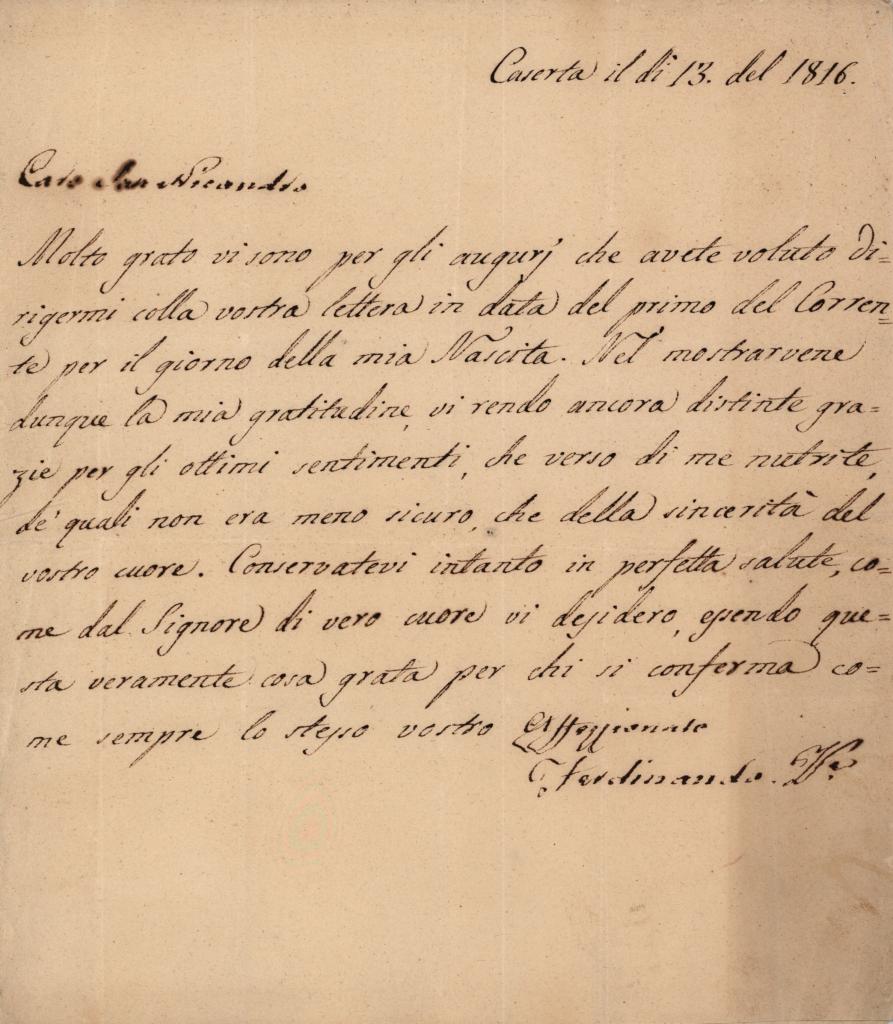 Caserta il dì 13. del 1816.
Caro San Nicandro
Molto grato vi sono per gli augurj che avete voluto di=
rigermi colla vostra lettera in data del primo del Corren=
te per il giorno della mia Nascita. Nel mostrarvene
dunque la mia gratitudine, vi rendo ancora distinte gra=
zie per gli ottimi sentimenti, che verso di me nutrite,
de' quali non era meno sicuro, che della sincerità del
vostro cuore. Conservatevi intanto in perfetta salute, co=
me dal Signore di vero cuore vi desidero, essendo que=
sta veramente cosa grata per chi si conferma co=
me sempre lo stesso vostro Affezzionato
Ferdinando